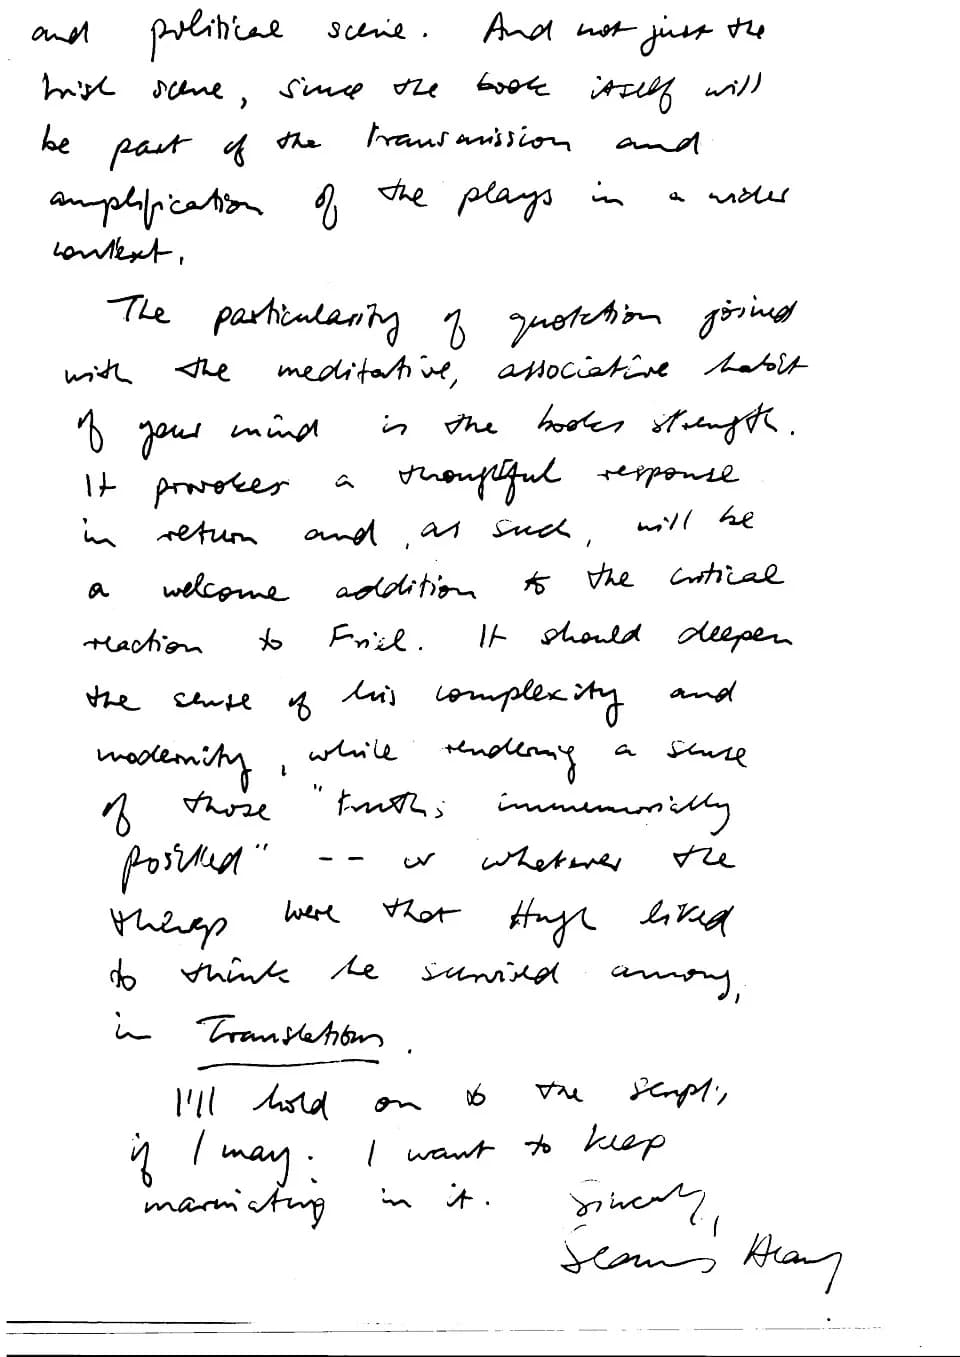 and political scene. And not just the
Irish scene, since the book itself will
be part of the transmission and
amplification of the plays in a wider
context.
The particularity of quotation joined
with the meditative, associative habit
of your mind is the books strength.
It provokes a thoughtful response
in return and, as such, will be
a welcome addition to the critical
reaction to Friel. It should deepen
the sense of his complexity and
modernity, while rendering a sense
of those "truths immemorially
posited" -- or whatever the
things were that Hugh liked
to think he survived among,
in Translations.
I'll hold on to the script,
if I may. I want to keep
marinating in it. Sincerely,
Seamus Heaney